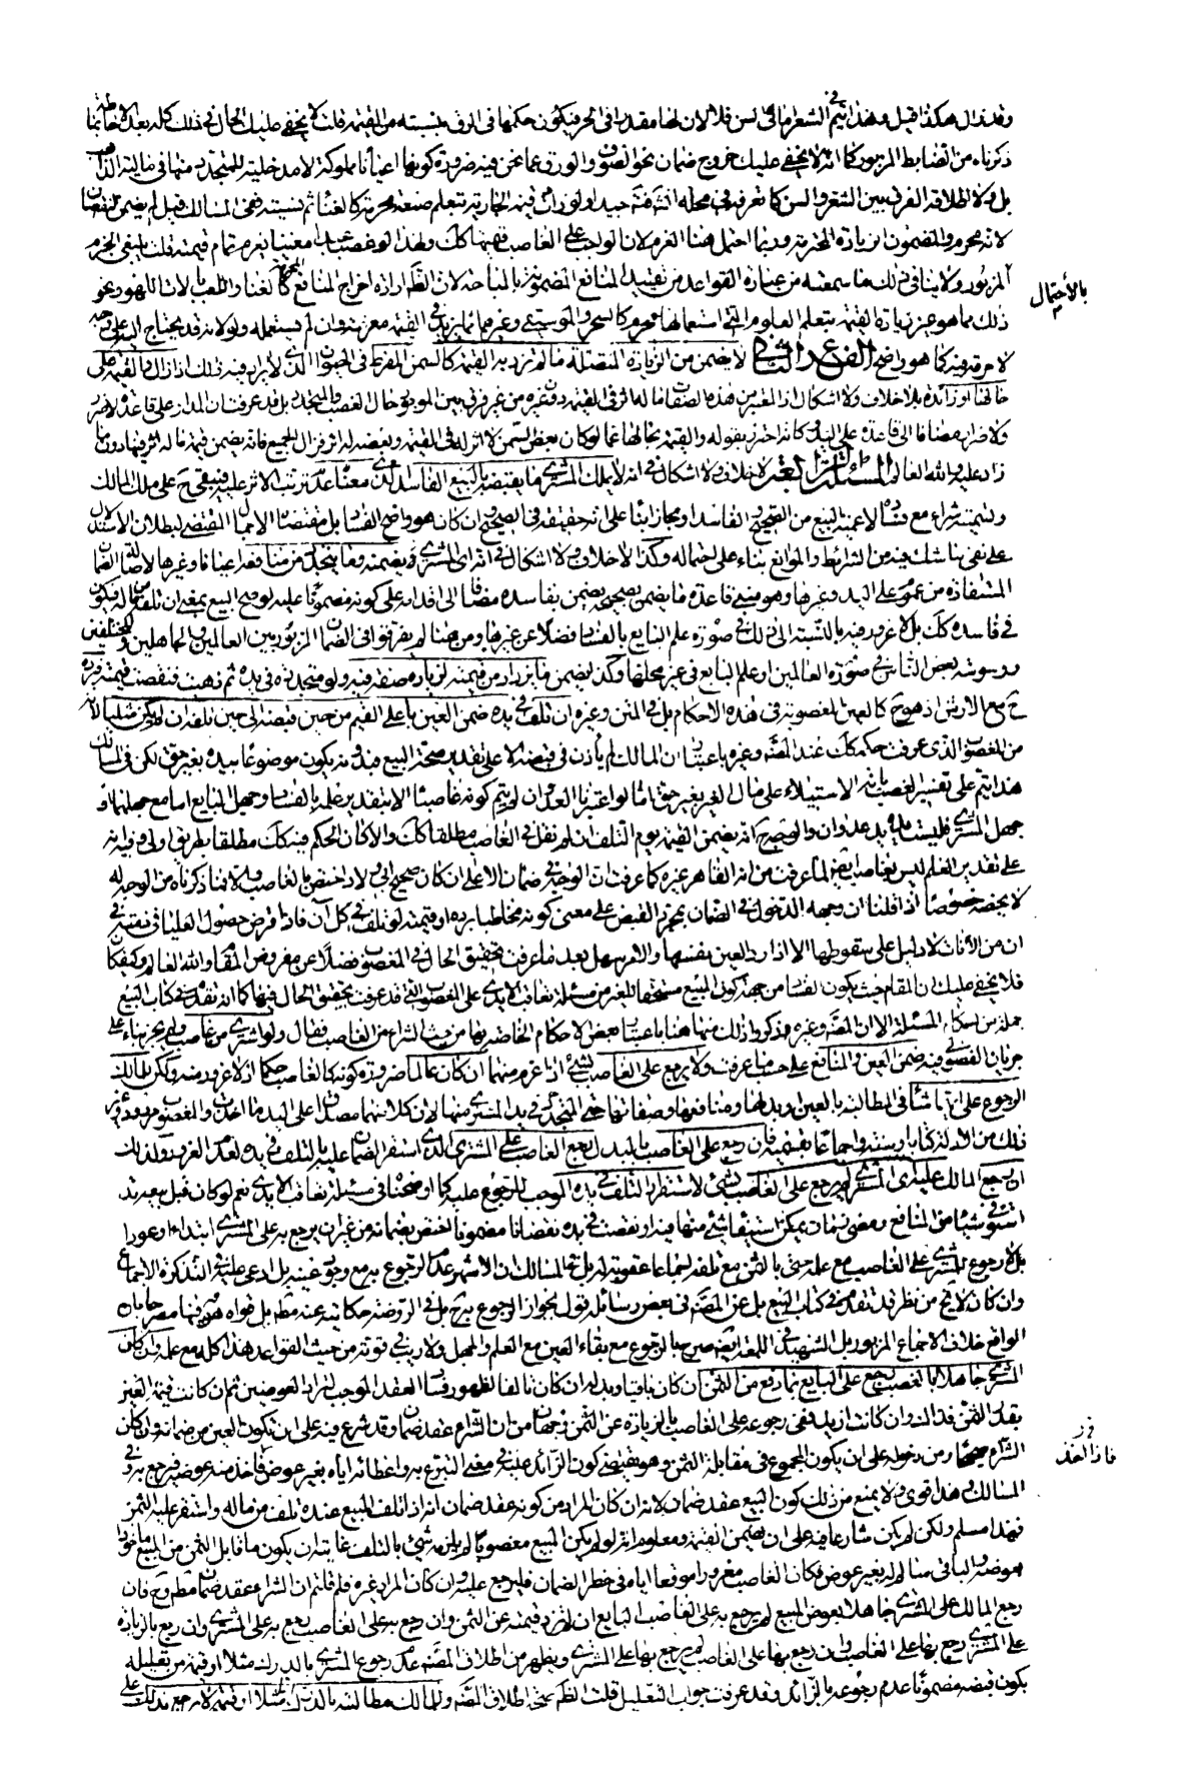 وقد زال هكذا قيل وهذا يتم في الشعر واما في السن فلا لان لها مقدرا في الحر فيكون حكمها في الرق بنسبته من القيمة قلت لا يخفى عليك الحال في ذلك كله بعد الاحاطة بما
ذكرناه من الضابط المزبور كما انه لا يخفى عليك خروج ضمان نحو الصوف والورق عما نحن فيه ضرورة كونها اعيانا مملوكة لا مدخلية للمتجدد منها في مالية الذاهب
بل ولا اطلاقه الفرق بين الشعر والسن كما تعرفه في محله انشاء الله جيدا ولو زادت قيمة الجارية بتعلم صنعة محرمة كالغناء ثم نسيته ففي المسالك قيل لم يضمن النقصان
لانه محرم والمضمون الزيادة المحترمة وربما احتمل هنا الغرم لان الواجب على الغاصب قيمتها كك ولهذا لو غصب عبدا مغنيا يغرم تمام قيمته قلت ينبغي الجزم
بالاحتمال
المزبور ولا ينافي ذلك ما سمعته من عبارة القواعد من تقييد المنافع المضمونة بالمباحة لان الظاهر ارادة اخراج المنافع المحرمة كالغناء واللعب بالات اللهو ونحو
ذلك مما هو غير زيادة القيمة بتعلم العلوم التي استعمالها محرم كالسحر والموسيقى وغيرهما مما يزيد في القيمة معرفته وان لم يستعمله ولو لانه قد يحتاج اليه على وجه
لا حرمة فيه كما هو واضح الفرع الثاني لا يضمن من الزيادة المتصلة ما لم تزد به القيمة كالسمن المفرط في الحيوان الذي لا يراد فيه ذلك اذا زال والقيمة على
حالها او زائدة بلا خلاف ولا اشكال اذ المعتبر من هذه الصفات ما له اثر في القيمة دون غيره من غير فرق بين الموجود حال الغصب والمتجدد بل قد عرفت ان المدار على قاعدة لا ضرر
ولا ضرار مضافا الى قاعدة على اليد وكانه احترز بقوله والقيمة بحالها عما لو كان بعض السمن لا اثر له في القيمة وبعضه له اثر فزال الجميع فانه يضمن قيمة ما له اثر فيها دون ما
زاد عليه والله العالم المسئلة الثالثة لا خلاف ولا اشكال في انه لا يملك المشتري ما يقبضه بالبيع الفاسد الذي معناه عدم ترتب الاثر عليه فيبقى ح على ملك المالك
وتسميته شراء مع فساده لاعمية البيع من الصحيح والفاسد او مجاز بناء على انه حقيقة في الصحيح وان كان هو واضح الفساد بل مقتضاه الاجمال المقتضي لبطلان الاستدلال
على نفي ما شك فيه من الشرائط والموانع بناء على احتماله وكذا لا خلاف ولا اشكال في انه اي المشتري يضمنه وما يتجدد من منافعه اعيانا وغيرها لاصالة الضمان
المستفادة من عموم على اليد وغيرها وهو مبنى قاعدة ما يضمن بصحيحه يضمن بفاسده مضافا الى اقدامه على كونه مضمونا عليه لو صح البيع بمعنى ان تلفه من ماله فيكون
في فاسده كك بل لا غرور فيه بالنسبة الى ذلك في صورة علم البايع بالفساد فضلا عن غيرها ومن هنا لم يفرقوا في الضمان المزبور بين العالمين والجاهلين والمختلفين
ووسوسة بعض الناس في صورة العالمين او علم البايع في غير محلها وكذا يضمن ما يزداد من قيمته لزيادة صفة فيه ولو متجددة في يده ثم ذهبت فنقصت قيمته فيرده
ح مع الارش اذ هو ح كالعين المغصوبة في هذه الاحكام بل في المتن وغيره ان تلف في يده ضمن العين باعلى القيم من حين قبضه الى حين تلفه ان لم يكن مثليا لانه
من المغصوب الذي عرفت حكمه كك عند المصنف وغيره باعتبار ان المالك لم ياذن في قبضه الا على تقدير صحة البيع فبدونه يكون موضوعا بيده بغير حق لكن في المسالك
هذا يتم على تفسير الغصب بانه الاستيلاء على مال الغير بغير حق اما لو اعتبرنا العدوان لم يتم كونه غاصبا الا بتقدير علمه بالفساد وجهل البايع اما مع جهلهما او
جهل المشتري فليست يده يد عدوان والصحيح انه يضمن القيمة يوم التلف ان لم نقل في الغاصب مطلقا كك والا كان الحكم فيه كك مطلقا بطريق اولى وفيه انه
على تقدير العلم ليس بغاصب ايضا لما عرفت من انه القاهر غيره كما عرفت ان الوجه في ضمان الاعلى ان كان صحيح ابي ولاد اختص بالغاصب والا فما ذكرناه من الوجه له
لا يخصه خصوصا اذا قلنا ان وجهه الدخول في الضمان بمجرد القبض على معنى كونه مخاطبا برده او قيمته لو تلف في كل آن فاذا فرض حصول العليا في قيمته في
ان من الانات لا دليل على سقوطها الا اذا رد العين بنفسها والامر سهل بعد ما عرفت تحقيق الحال في المغصوب فضلا عن مفروض المقام والله العالم وكيف كان
فلا يخفى عليك ان المقام حيث يكون الفساد من جهة كون المبيع مستحقا للغير من مسئلة تعاقب الايدي على المغصوب التي قد عرفت تحقيق الحال فيها كما انه تقدم في كتاب البيع
جملة من احكام المسئلة الا ان المصنف وغيره ذكروا ذلك منها هنا باعتبار بعض الاحكام الخاصة بها من حيث الشراء من الغاصب فقال ولو اشترى من غاصب ولم يجز بناء على
جريان الفضولي فيه ضمن العين والمنافع على حسب ما عرفت ولا يرجع على الغاصب بشيء اذا غرم منهما ان كان عالما ضرورة كونه كالغاصب حكما اذ لا غرور منه ولكن للمالك
الرجوع على ايهما شاء في المطالبة بالعين وبدلها ومنافعها وصفاتها حتى المتجدد في يد المشتري منها لان كلا منهما مصداق على اليد ما اخذت والمغصوب مردود وغير
ذلك من الادلة كتابا وسنة واجماعا بقسميه فان رجع على الغاصب بالبدل رجع الغاصب على المشتري الذي استقر الضمان عليه بالتلف في يده لعدم الغرور وله ذلك
ان رجع المالك عليه اي المشتري لم يرجع على الغاصب بشيء لاستقرار التلف في يده الموجب للرجوع عليه كما اوضحناه في مسئلة تعاقب الايدي نعم لو كان قبل بيعه قد
استوفى شيئا من المنافع او مضى زمان يمكن استيفاء شيء منها فيه او نقصت في يده نقصانا مضمونا اختص بضمانه من غير ان يرجع به على المشتري ابتداء او عودا
بل لا رجوع للمشتري على الغاصب مع علمه حتى بالثمن مع تلفه اجماعا عقوبة له بل في المسالك ان الاشهر عدم الرجوع به مع وجود عينه بل ادعى عليه في التذكرة الاجماع
وان كان لا يخ من نظر قد تقدم في كتاب البيع بل عن المصنف في بعض رسائله قول بجواز الرجوع به ح بل في الروضة حكايته عنه مط بل قواه هو فيها مصرحا بان
الواقع خلاف الاجماع المزبور بل الشهيد في اللمعة ايضا صرح بالرجوع مع بقاء العين مع العلم والجهل ولا ريب في قوته من حيث القواعد هذا كله مع علمه وان كان
المشتري جاهلا بالغصب رجع على البايع بما دفع من الثمن ان كان باقيا وبدله ان كان تالفا لظهور فساد العقد الموجب لتراد العوضين ثم ان كانت قيمة العين
بقدر الثمن فذاك وان كانت ازيد ففي رجوعه على الغاصب بالزيادة عن الثمن وجهان من ان الشراء عقد ضمان وقد شرع فيه على ان يكون العين من ضمانه وان كان
الشراء صحيحا ومن دخوله على ان يكون المجموع في مقابلة الثمن وهو يقتضي كون الزائد عليه في معنى التبرع به واعطائه اياه بغير عوض فاذا اخذ منه عوضه فرجع به وفي
المسالك وهذا قوي ولا يمنع من ذلك كون البيع عقد ضمان لانه ان كان المراد من كونه عقد ضمان انه اذا تلف المبيع عنده تلف من ماله واستقر عليه الثمن
فهذا مسلم ولكن لم يكن شارعا فيه على ان يضمن القيمة ومعلوم انه لو لم يكن المبيع مغصوبا لم يلزمه شيء بالتلف غايته ان يكون ما قابل الثمن من المبيع ماخوذا
بعوضه والباقي سالم له بغير عوض فكان الغاصب مغررا موقعا اياه في خطر الضمان فليرجع عليه وان كان المراد غيره فلم قلتم ان الشراء عقد ضمان مط وح فان
رجع المالك على المشتري جاهلا بعوض المبيع لم يرجع به على الغاصب البايع ان لم تزد قيمته عن الثمن وان رجع به على الغاصب رجع به على المشتري وان رجع بالزيادة
على المشتري رجع بها على الغاصب وان رجع بها على الغاصب لم يرجع بها على المشتري ويظهر من اطلاق المصنف عدم رجوع المشتري بالدرك مثلا او قيمة من تعليله
بكون قبضه مضمونا عدم رجوعه بالزائد وقد عرفت جواب التعليل قلت الظاهر صحة اطلاق المصنف وللمالك مطالبته بالدرك اما مثلا او قيمة لا يرجع بذلك على